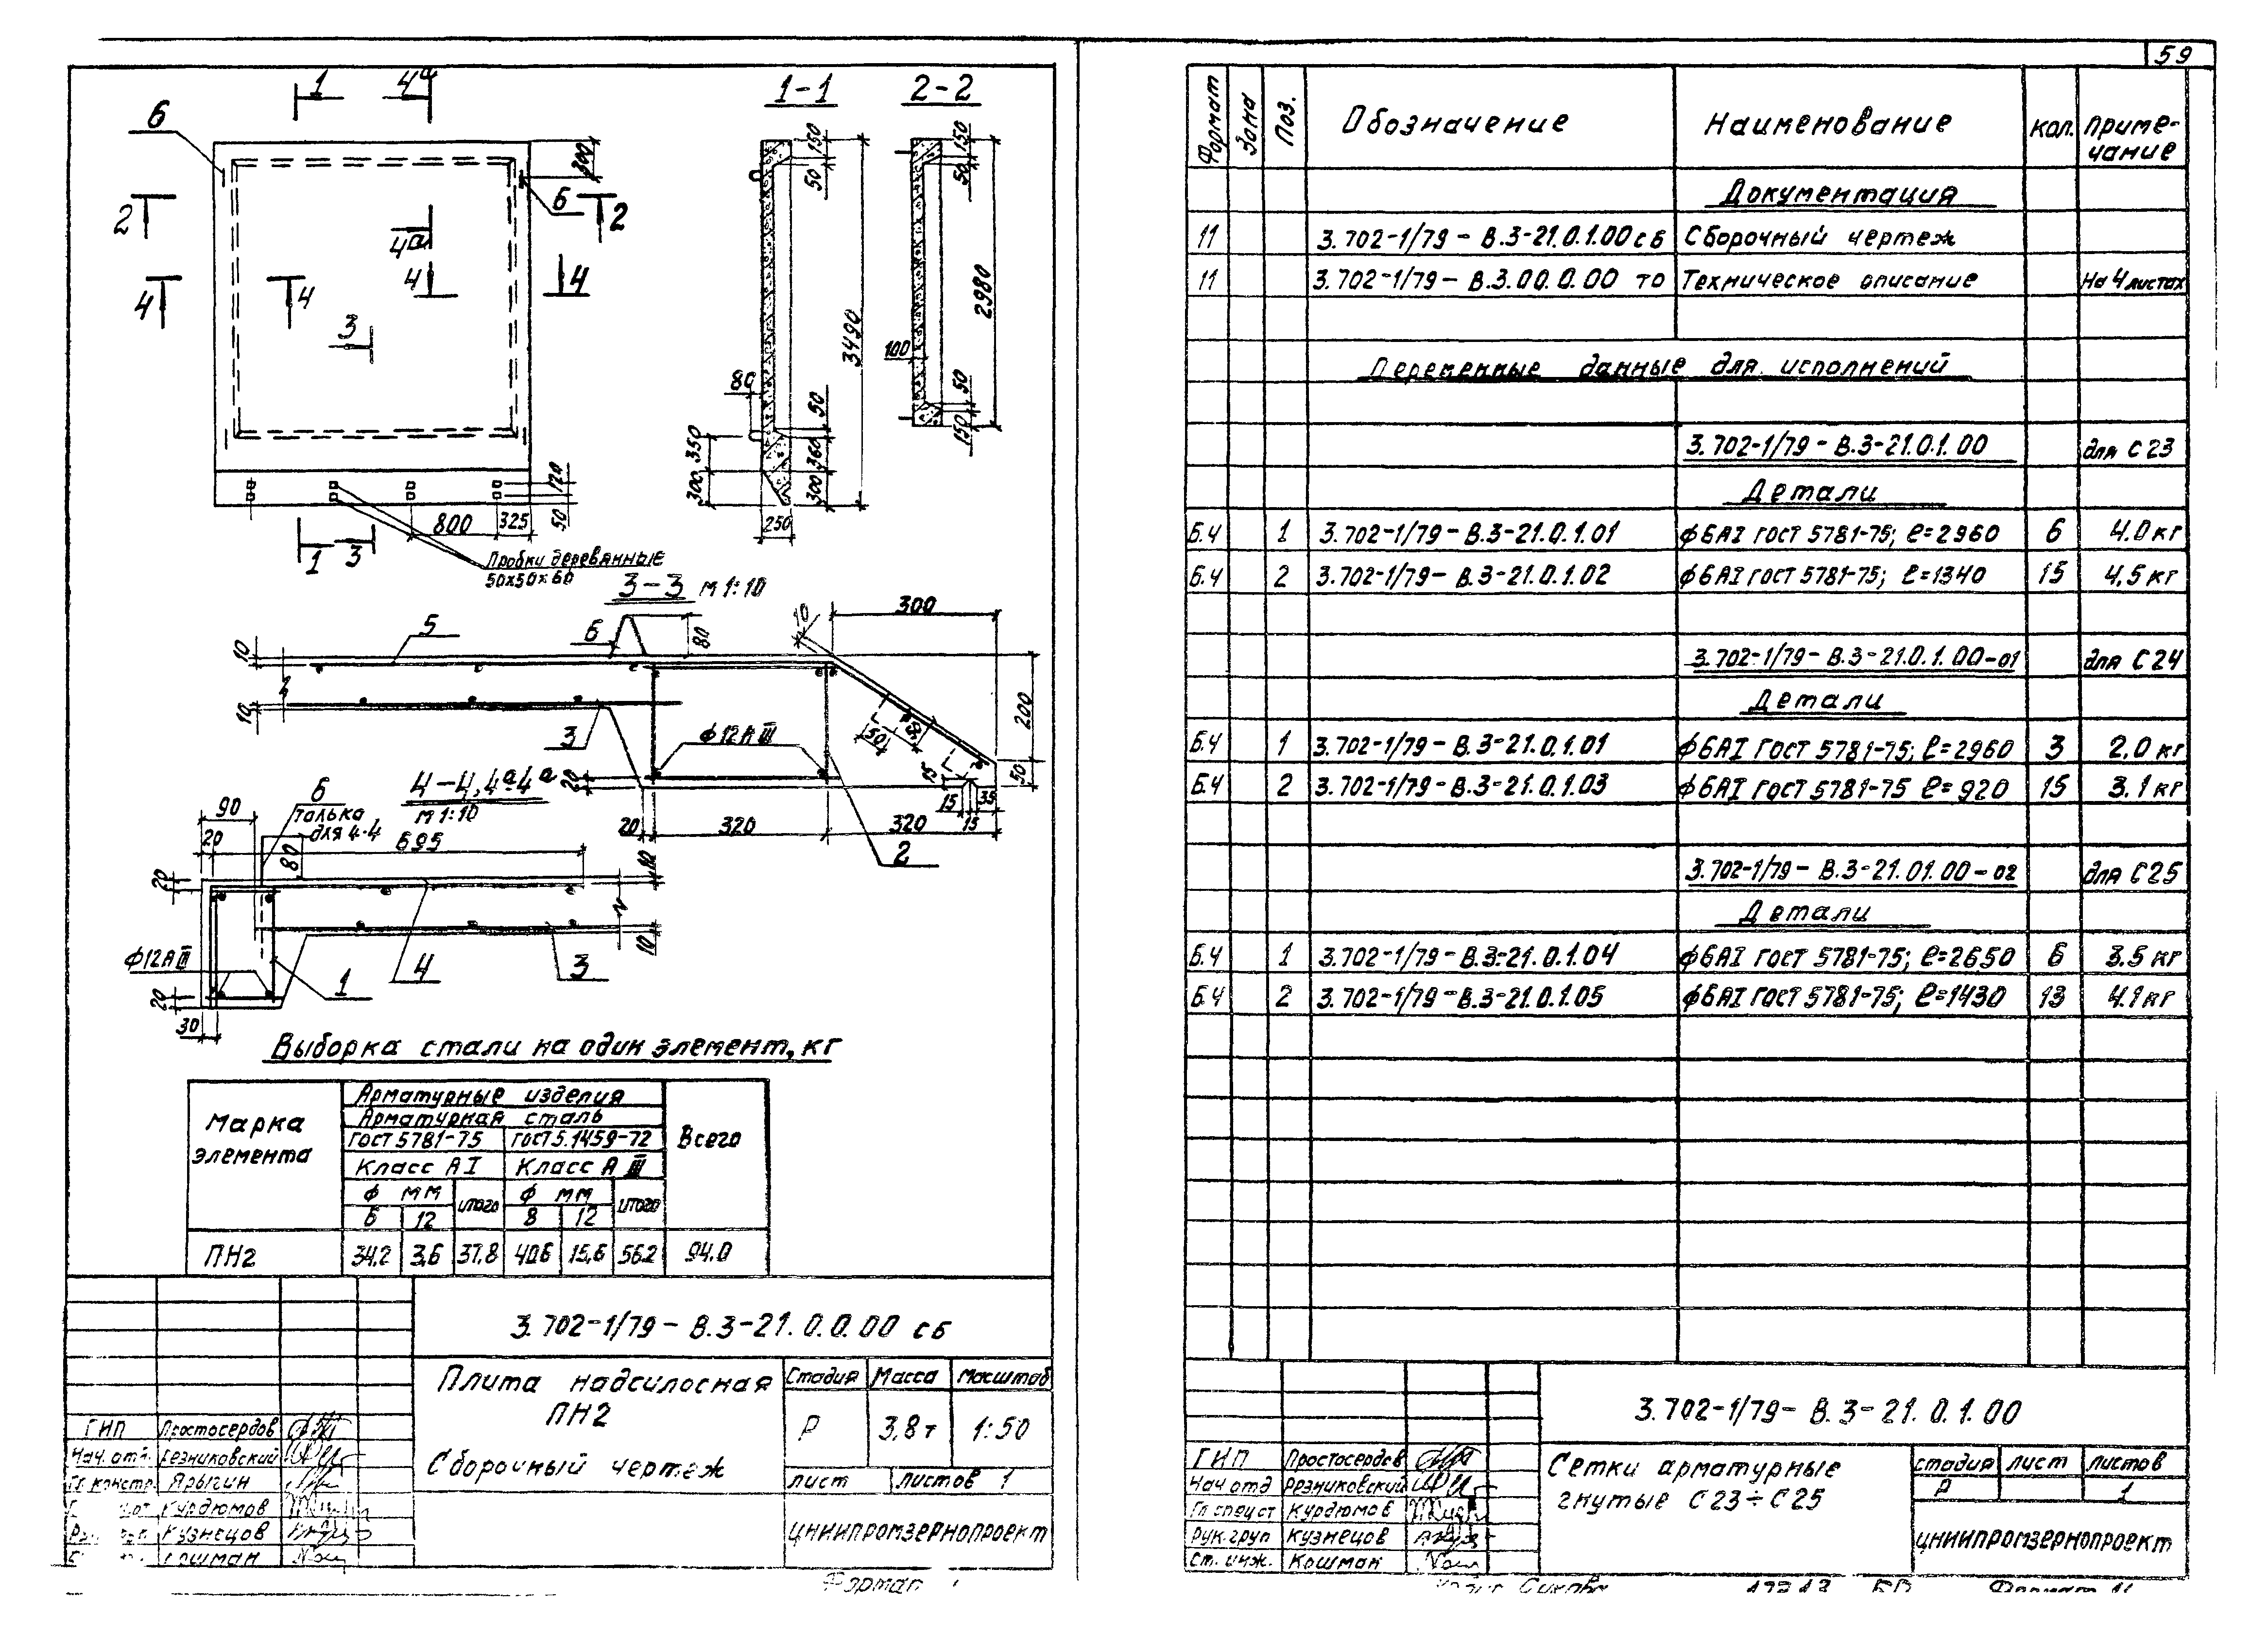 59
1
4а
1-1
2-2
6
300
150
50
150
50
2
6
2
4а
4
4
4
4
3
80
3490
100
2980
50
150
50
350
360
300
300
250
120
50
800
325
1
3
Пробки деревянные
50х50х60
3-3 м 1:10
5
6
80
10
300
10
10
3
ф12АIII
50
200
50
15
15
35
15
20
20
320
320
2
4-4, 4а-4а
м 1:10
6
только
для 4-4
90
20
695
80
20
10
10
ф12АIII
20
30
1
4
3
Выборка стали на один элемент, кг
Марка элемента
Арматурные изделия
Арматурная сталь
ГОСТ 5781-75
ГОСТ 5.1459-72
Всего
Класс АI
Класс АIII
ф мм
итого
ф мм
итого
6
12
8
12
ПН2 34,2 3,6 37,8 40,6 15,6 56,2 94,0
3.702-1/79-В.3-21.0.0.00 сб
Плита надсилосная
ПН2
Сборочный чертеж
Стадия Масса Масштаб
Р 3,8т 1:50
лист листов 1
ЦНИИПРОМЗЕРНОПРОЕКТ
ГИП Простосердов
Нач. отд. Резниковский
Гл. констр. Ярыгин
Курдюмов
Кузнецов
Кошман
Формат
Формат Зона Поз. Обозначение Наименование Кол. Примечание
Документация
11 3.702-1/79-В.3-21.0.1.00 сб Сборочный чертеж
11 3.702-1/79-В.3.00.0.00 то Техническое описание На 4 листах
Переменные данные для исполнений
3.702-1/79-В.3-21.0.1.00 для С23
Детали
Б.4 1 3.702-1/79-В.3-21.0.1.01 ф6АI ГОСТ 5781-75; ℓ=2960 6 4.0 кг
Б.4 2 3.702-1/79-В.3-21.0.1.02 ф6АI ГОСТ 5781-75; ℓ=1340 15 4,5 кг
3.702-1/79-В.3-21.0.1.00-01 для С24
Детали
Б.4 1 3.702-1/79-В.3-21.0.1.01 ф6АI ГОСТ 5781-75; ℓ=2960 3 2.0 кг
Б.4 2 3.702-1/79-В.3-21.0.1.03 ф6АI ГОСТ 5781-75 ℓ=920 15 3.1 кг
3.702-1/79-В.3-21.01.00-02 для С25
Детали
Б.4 1 3.702-1/79-В.3-21.0.1.04 ф6АI ГОСТ 5781-75; ℓ=2650 6 3.5 кг
Б.4 2 3.702-1/79-В.3-21.0.1.05 ф6АI ГОСТ 5781-75; ℓ=1430 13 4.1 кг
3.702-1/79-В.3-21.0.1.00
Сетки арматурные
гнутые С23÷С25
стадия лист листов
Р 1
ЦНИИПРОМЗЕРНОПРОЕКТ
ГИП Простосердов
Нач отд Резниковский
Гл спецст Курдюмов
Рук. груп Кузнецов
Ст. инж. Кошман
Формат 11